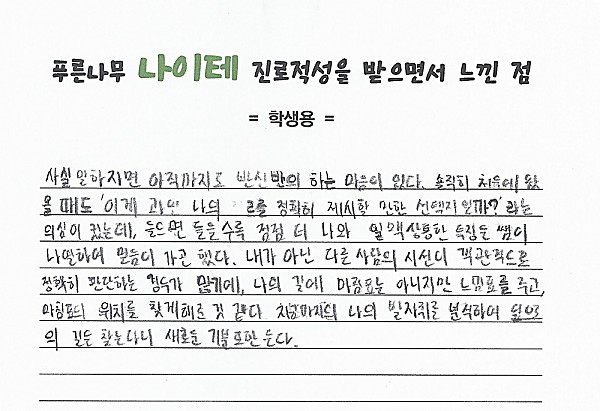 푸른나무 나이테 진로적성을 받으면서 느낀 점
= 학생용 =
사실 말하자면 아직까지도 반신반의 하는 마음이 있다. 솔직히 처음에 왔
을 때도 '이게 과연 나의 를 정확히 제시할 만한 선택지일까?' 라는
의심이 컸는데, 들으면 들을수록 점점 더 나와 일맥상통한 특징들
나열하여 믿음이 가곤 했다. 내가 아닌 다른 사람의 시선이 객관적으로
정확히 판단하는 경우가 많기에, 나의 길에 마침표는 아니지만 느낌표를 주고,
마침표의 위치를 찾게해준 것 같다. 지금까지의 나의 발자취를 분석하여 앞으로
의 길을 찾는다니 새로운 기분도 든다.